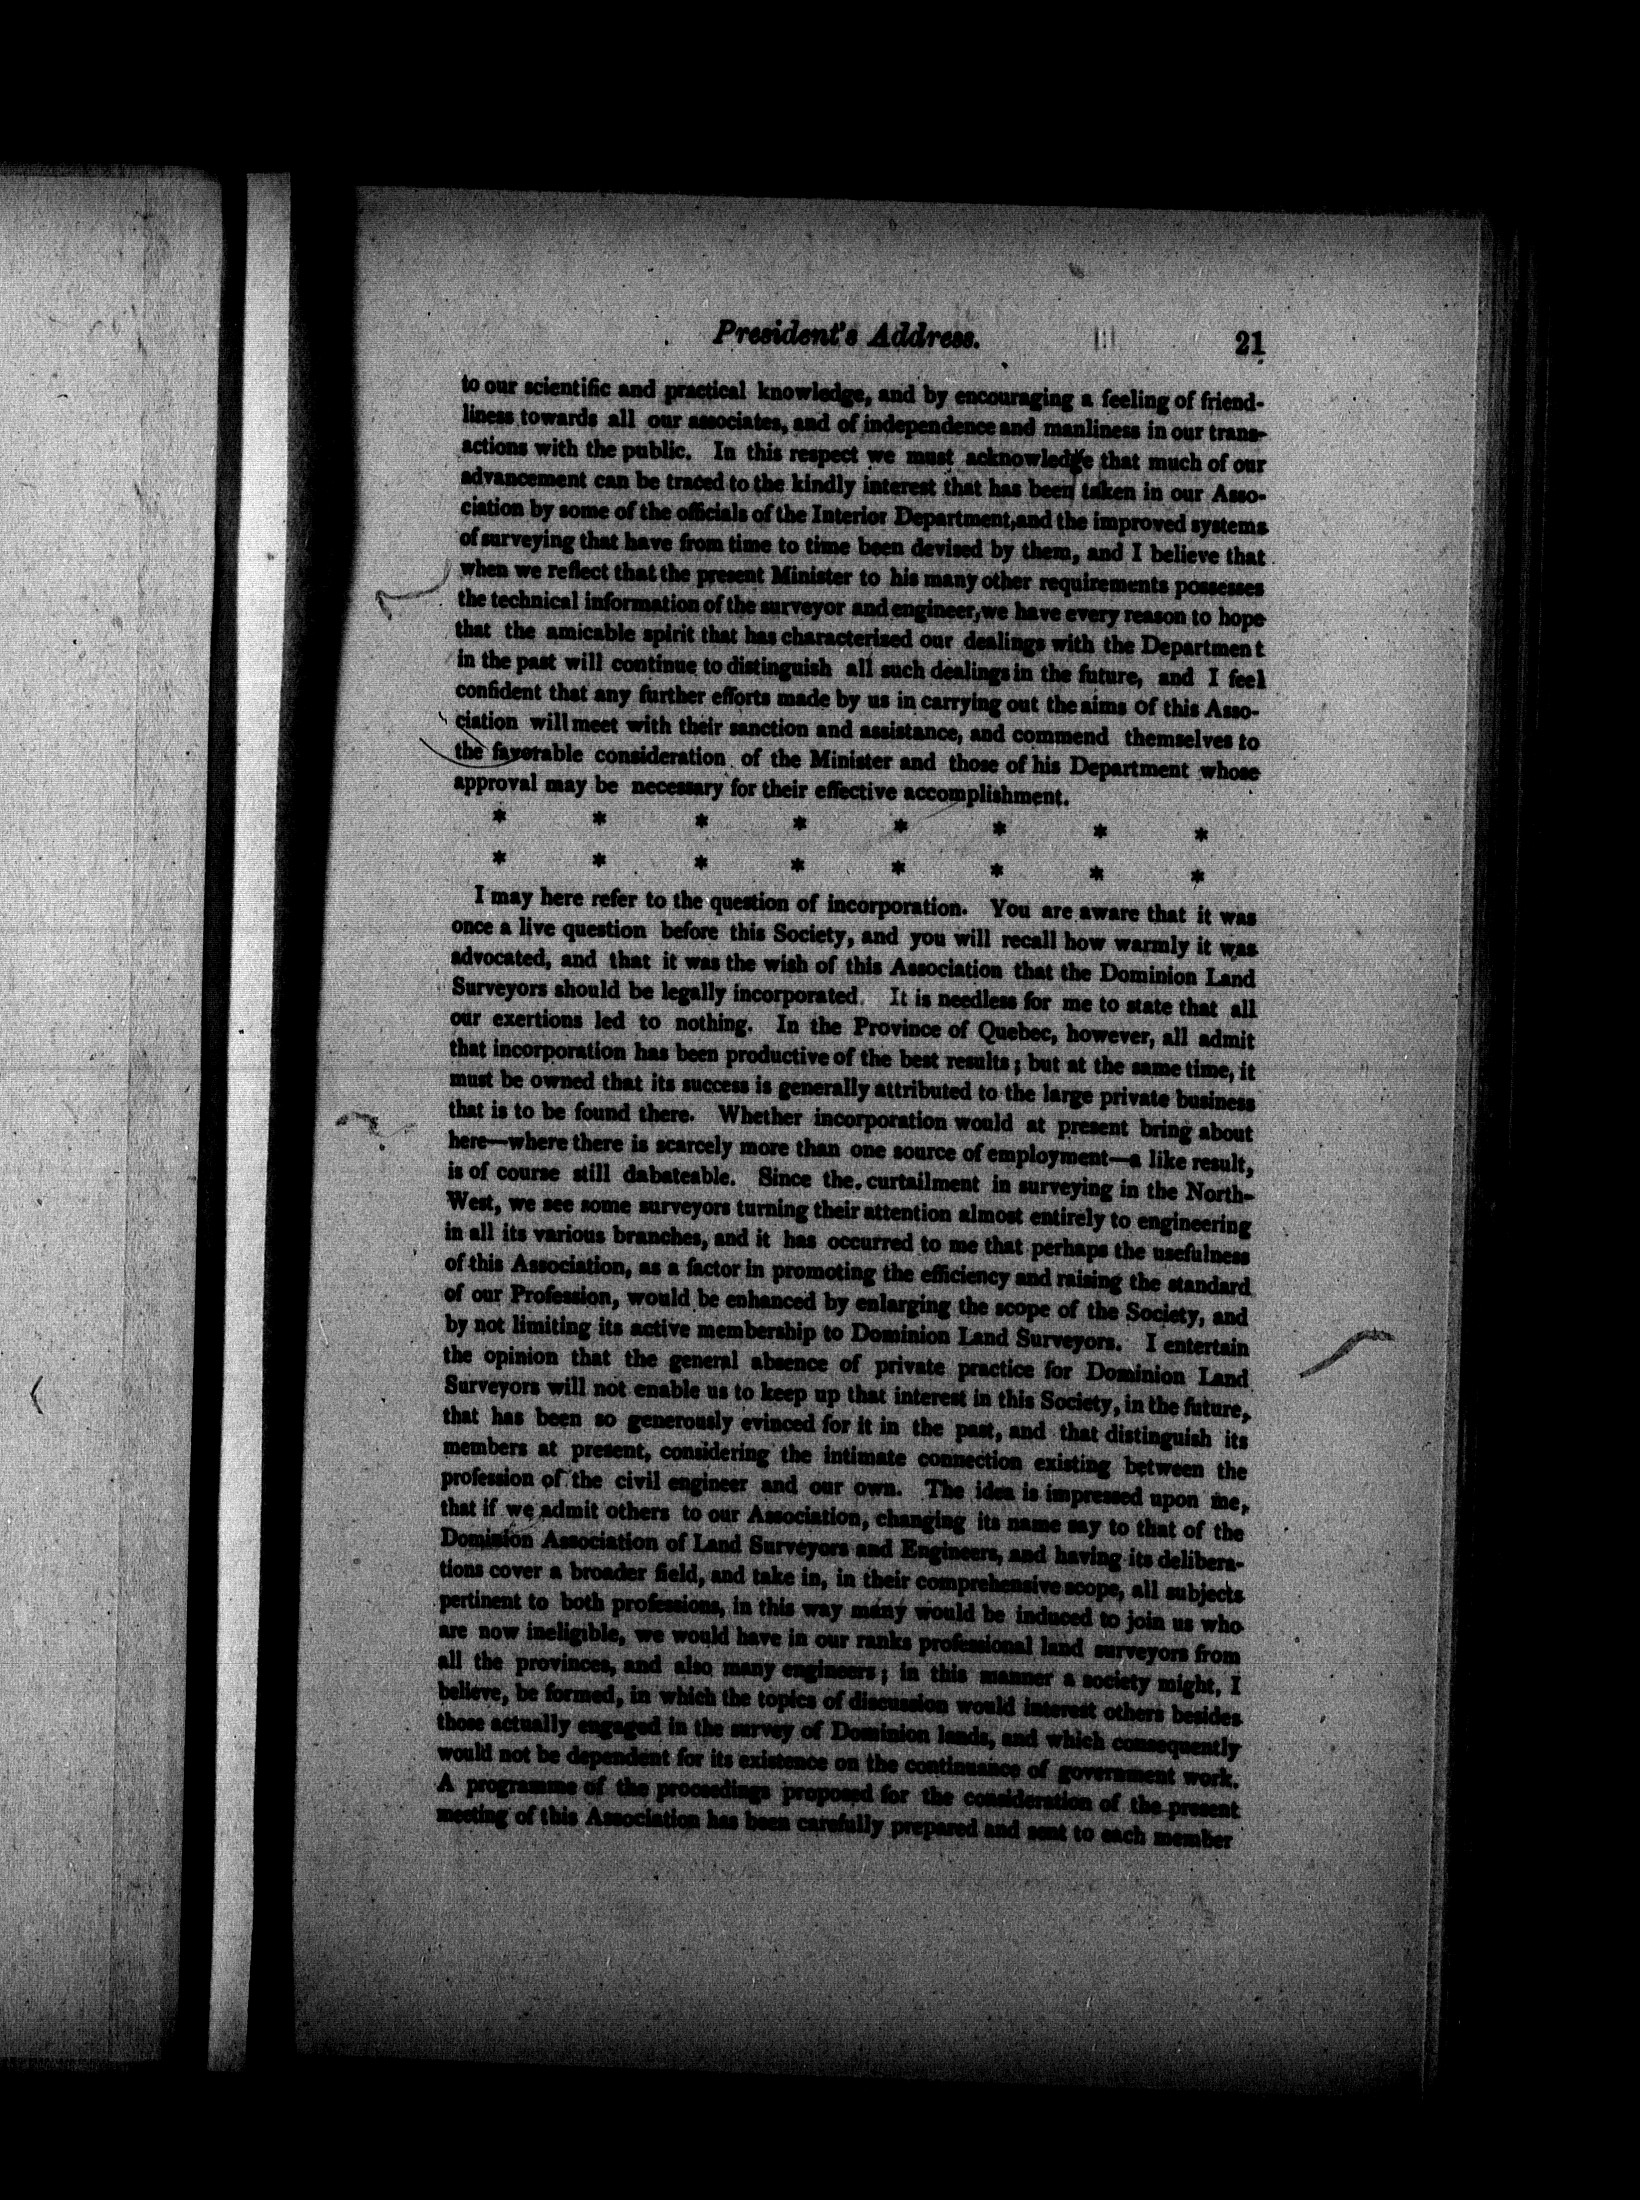 President's Address. 21
to our scientific and practical knowledge, and by encouraging a feeling of friend-
liness towards all our associates, and of independence and manliness in our trans-
actions with the public. In this respect we must acknowledge that much of our
advancement can be traced to the kindly interest that has been taken in our Asso-
ciation by some of the officials of the Interior Department, and the improved systems
of surveying that have from time to time been devised by them, and I believe that
when we reflect that the present Minister to his many other requirements possesses
the technical information of the surveyor and engineer, we have every reason to hope
that the amicable spirit that has characterized our dealings with the Department
in the past will continue to distinguish all such dealings in the future, and I feel
confident that any further efforts made by us in carrying out the aims of this Asso-
ciation will meet with their sanction and assistance, and commend themselves to
the favorable consideration of the Minister and those of his Department whose
approval may be necessary for their effective accomplishment.
* * * * * * * *
* * * * * * * *
I may here refer to the question of incorporation. You are aware that it was
once a live question before this Society, and you will recall how warmly it was
advocated, and that it was the wish of this Association that the Dominion Land
Surveyors should be legally incorporated. It is needless for me to state that all
our exertions led to nothing. In the Province of Quebec, however, all admit
that incorporation has been productive of the best results; but at the same time, it
must be owned that its success is generally attributed to the large private business
that is to be found there. Whether incorporation would at present bring about
here—where there is scarcely more than one source of employment—a like result,
is of course still dabateable. Since the curtailment in surveying in the North-
West, we see some surveyors turning their attention almost entirely to engineering
in all its various branches, and it has occurred to me that perhaps the usefulness
of this Association, as a factor in promoting the efficiency and raising the standard
of our Profession, would be enhanced by enlarging the scope of the Society, and
by not limiting its active membership to Dominion Land Surveyors. I entertain
the opinion that the general absence of private practice for Dominion Land
Surveyors will not enable us to keep up that interest in this Society, in the future,
that has been so generously evinced for it in the past, and that distinguish its
members at present, considering the intimate connection existing between the
profession of the civil engineer and our own. The idea is impressed upon me,
that if we admit others to our Association, changing its name say to that of the
Dominion Association of Land Surveyors and Engineers, and having its delibera-
tions cover a broader field, and take in, in their comprehensive scope, all subjects
pertinent to both professions, in this way many would be induced to join us who
are now ineligible, we would have in our ranks professional land surveyors from
all the provinces, and also many engineers; in this manner a society might, I
believe, be formed, in which the topics of discussion would interest others besides
those actually engaged in the survey of Dominion lands, and which consequently
would not be dependent for its existence on the continuance of government work.
A programme of the proceedings proposed for the consideration of the present
meeting of this Association has been carefully prepared and sent to each member